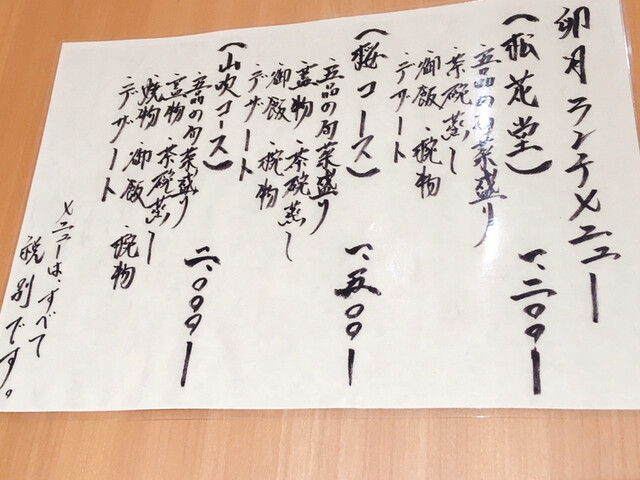 卯月ランチメニュー
(松花堂)
五品の旬菜盛り
茶碗蒸し
御飯 椀物
デザート
一、二〇〇ー
(桜コース)
五品の旬菜盛り
蓋物 茶碗蒸し
御飯 椀物
デザート
一、五〇〇ー
(山吹コース)
五品の旬菜盛り
蓋物 茶碗蒸し
焼物 御飯 椀物
デザート
二、〇〇〇ー
メニューは、すべて
税別です。